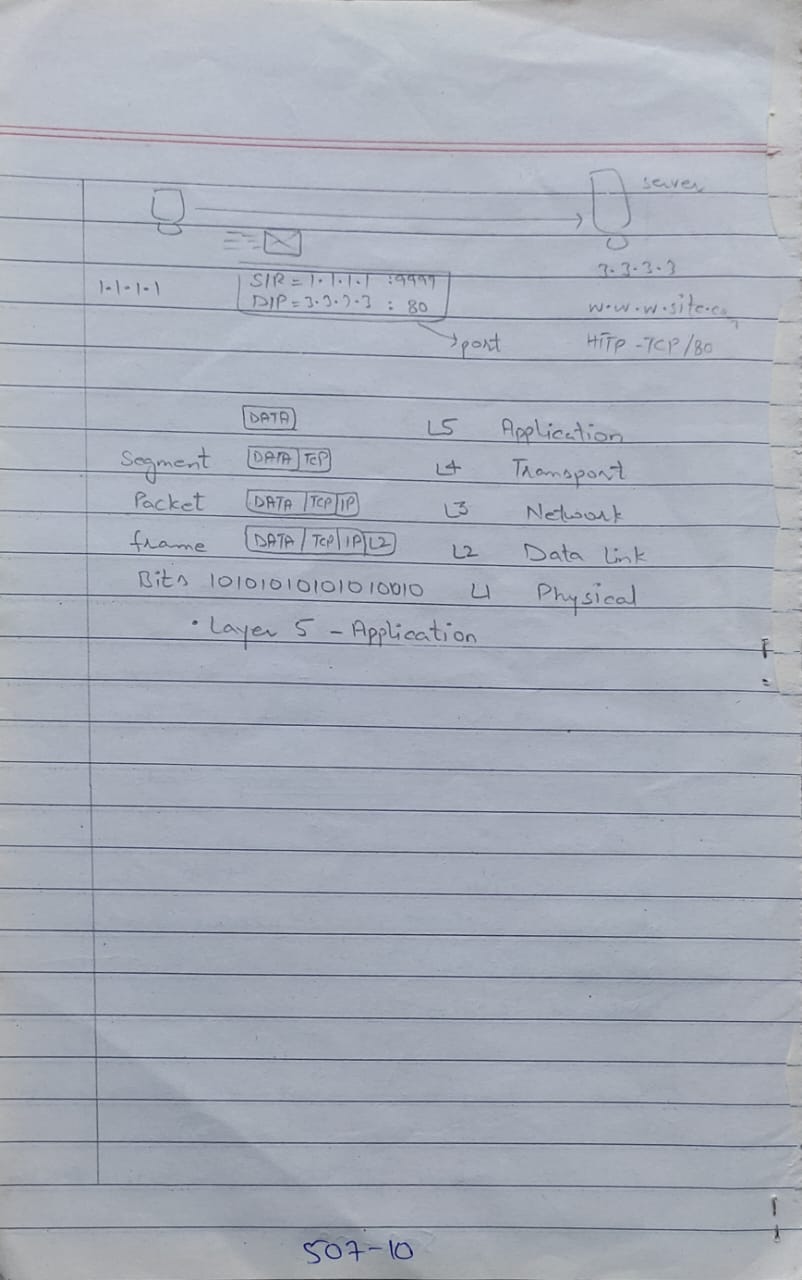 server
3.3.3.3
1.1.1.1
SIR = 1.1.1.1 :9999
DIP = 3.3.3.3 : 80
w.w.w.site.co
port
HTTP - TCP/80
DATA L5 Application
Segment DATA TCP L4 Transport
Packet DATA TCP IP L3 Network
frame DATA TCP IP L2 L2 Data Link
Bits 10101010101010010 L1 Physical
• Layer 5 - Application
507-10